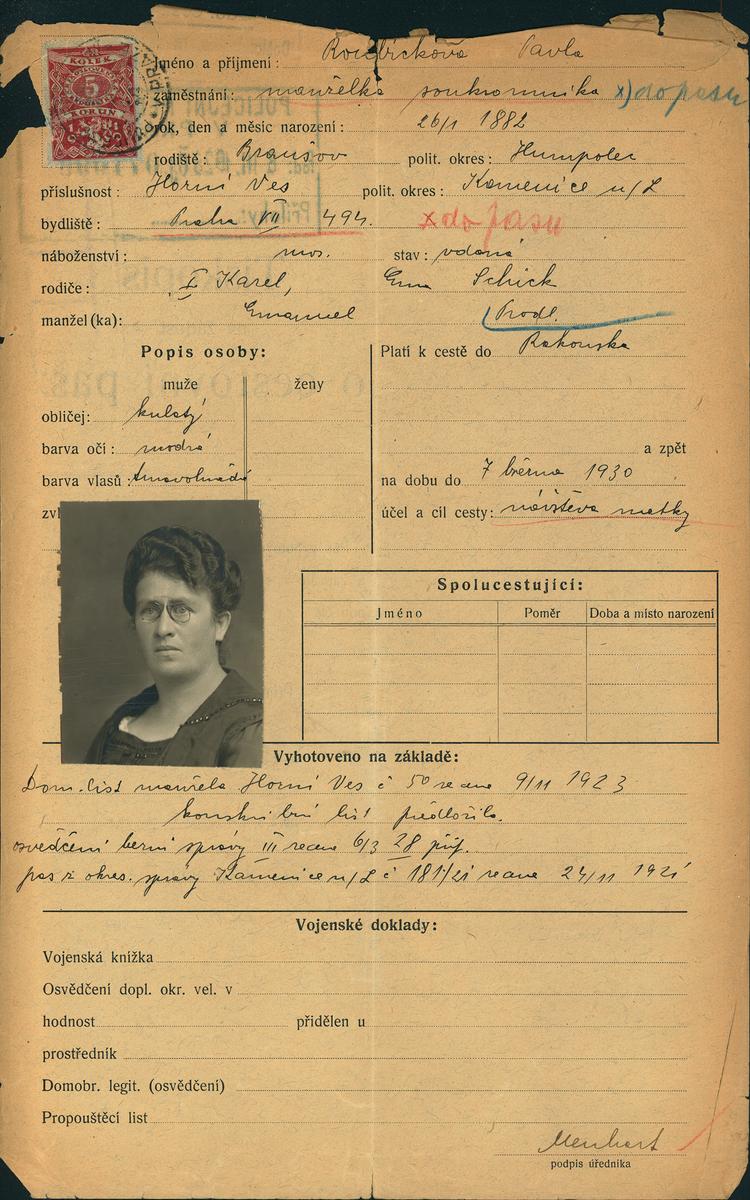 KOLEK
5
KORUN
Jméno a příjmení: Roubíčková Pavla
zaměstnání: manželka soukromníka x) do pasu
rok, den a měsíc narození: 26/1 1882
rodiště: Branšov polit. okres: Humpolec
příslušnost: Horní Ves polit. okres: Kamenice n/L
bydliště: Praha VII 494.
x do pasu
náboženství: mos. stav: vdaná
rodiče: Karel, Ema Schick
manžel(ka): Emanuel Prodl.
Popis osoby:
Platí k cestě do Rakouska
muže ženy
obličej: kulatý
barva očí: modrá
a zpět
barva vlasů: tmavohnědé
na dobu do 7 března 1930
zvl
účel a cíl cesty: návštěva matky
Spolucestující:
Jméno Poměr Doba a místo narození
Vyhotoveno na základě:
Dom. list manžela Horní Ves č 50 ze dne 9/11 1923
konskribní list předložila.
osvědčení berní správy III ze dne 6/3 28 příp.
pas z okres. správy Kamenice n/L č 181/21 ze dne 24/11 1921
Vojenské doklady:
Vojenská knížka
Osvědčení dopl. okr. vel. v
hodnost přidělen u
prostředník
Domobr. legit. (osvědčení)
Propouštěcí list
Menhart
podpis úředníka